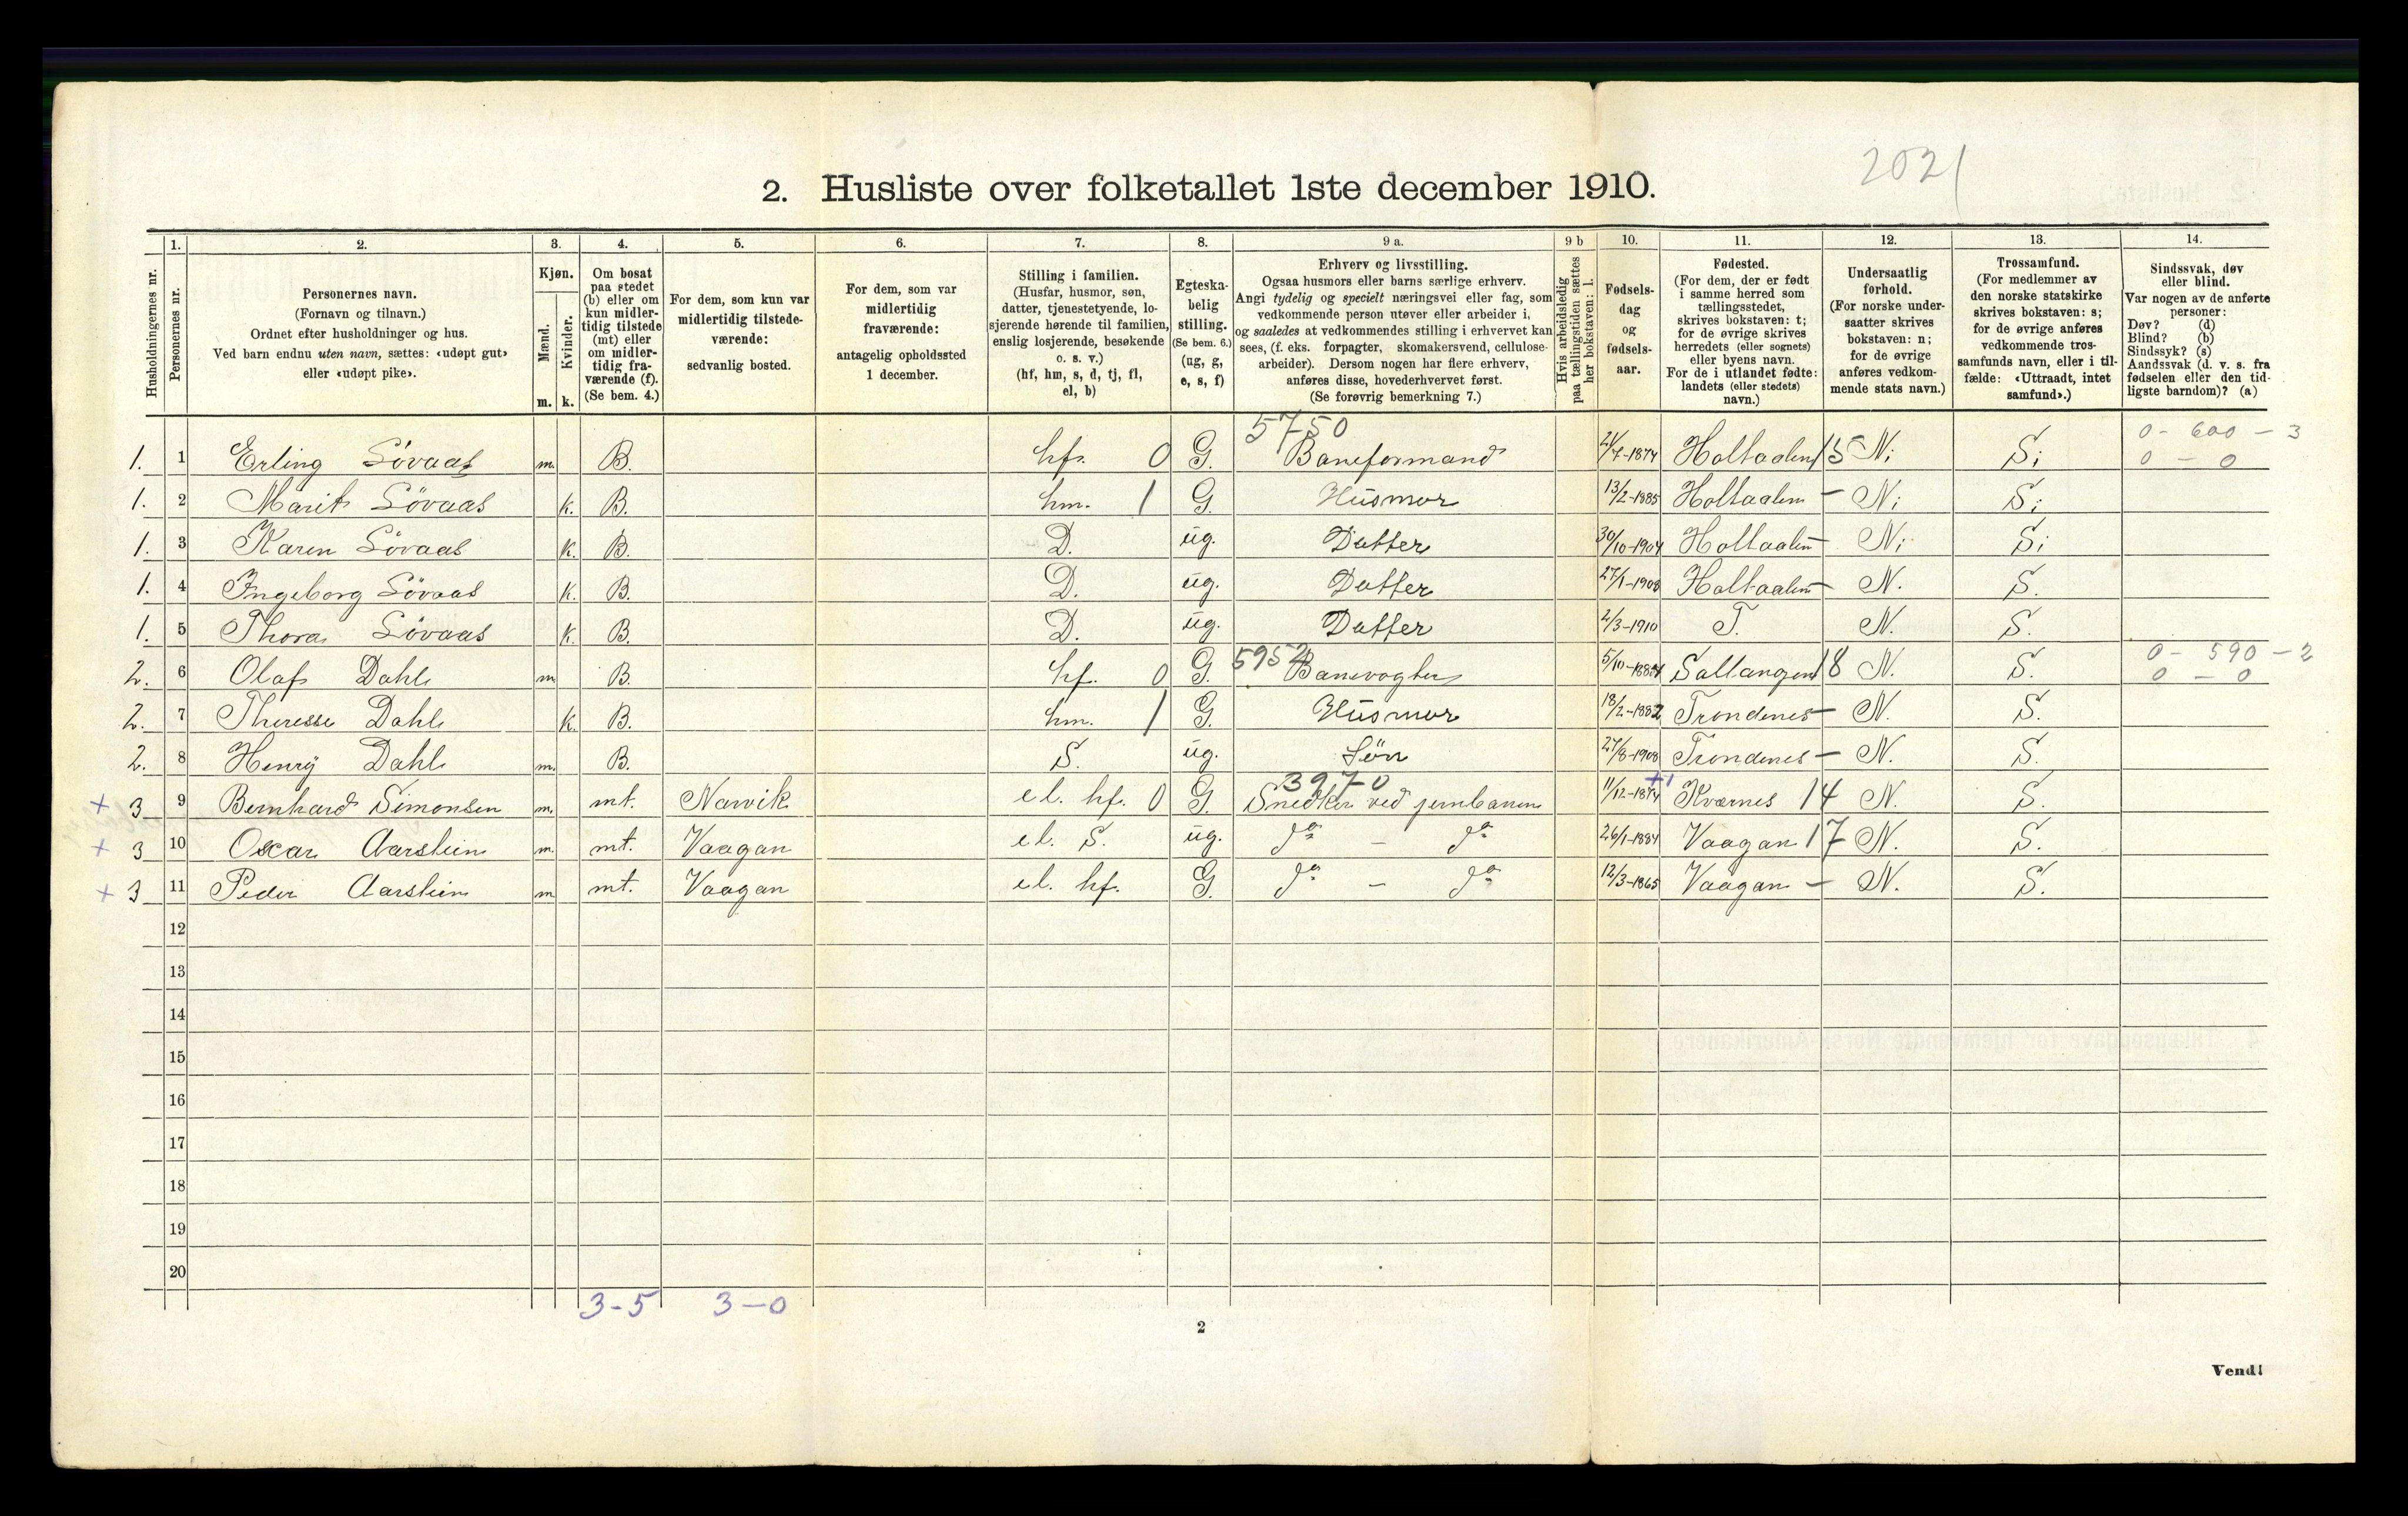 2021
2. Husliste over folketallet 1ste december 1910.
Husholdningernes nr.
1.
Personernes nr.
2.
Personernes navn.
(Fornavn og tilnavn.)
Ordnet efter husholdninger og hus.
Ved barn endnu uten navn, sættes: «udøpt gut»
eller «udøpt pike».
3.
Kjøn.
Mænd.
Kvinder.
m. k.
4.
Om bosat
paa stedet
(b) eller om
kun midler-
tidig tilstede
(mt) eller
om midler-
tidig fra-
værende (f).
(Se bem. 4.)
5.
For dem, som kun var
midlertidig tilstede-
værende:
sedvanlig bosted.
6.
For dem, som var
midlertidig
fraværende:
antagelig opholdssted
1 december.
7.
Stilling i familien.
(Husfar, husmor, søn,
datter, tjenestetyende, lo-
sjerende hørende til familien,
enslig losjerende, besøkende
o. s. v.)
(hf, hm, s, d, tj, fl,
el, b)
8.
Egteska-
belig
stilling.
(Se bem. 6.)
(ug, g,
e, s, f)
9 a.
Erhverv og livsstilling.
Ogsaa husmors eller barns særlige erhverv.
Angi tydelig og specielt næringsvei eller fag, som
vedkommende person utøver eller arbeider i,
og saaledes at vedkommendes stilling i erhvervet kan
sees, (f. eks. forpagter, skomakersvend, cellulose-
arbeider). Dersom nogen har flere erhverv,
anføres disse, hovederhvervet først.
(Se forøvrig bemerkning 7.)
9 b
Hvis arbeidsledig
paa tællingstiden sættes
her bokstaven: l.
10.
Fødsels-
dag
og
fødsels-
aar.
11.
Fødested.
(For dem, der er født
i samme herred som
tællingsstedet,
skrives bokstaven: t;
for de øvrige skrives
herredets (eller sognets)
eller byens navn.
For de i utlandet fødte:
landets (eller stedets)
navn.)
12.
Undersaatlig
forhold.
(For norske under-
saatter skrives
bokstaven: n;
for de øvrige
anføres vedkom-
mende stats navn.)
13.
Trossamfund.
(For medlemmer av
den norske statskirke
skrives bokstaven: s;
for de øvrige anføres
vedkommende tros-
samfunds navn, eller i til-
fælde: «Uttraadt, intet
samfund».)
14.
Sindssvak, døv
eller blind.
Var nogen av de anførte
personer:
Døv? (d)
Blind? (b)
Sindssyk? (s)
Aandssvak (d. v. s. fra
fødselen eller den tid-
ligste barndom)? (a)
5750 0 - 600 - 3
1. 1 Erling Sövaas m. B. hf. 0 G. Baneformand 1874 Holtaalen 15 N; S; 0 - 0
1. 2 Marit Sövaas k. B. hm. 1 G. Husmor 13/2-1885 Holtaalen - N; S;
1. 3 Karen Sövaas k. B. D. ug. Datter 30/10-1904 Holtaalen - N; S;
1. 4 Ingeborg Sövaas k. B. D. ug. Datter 27/1-1908 Holtaalen - N. S.
1. 5 Thora Sövaas k. B. D. ug. Datter 2/3-1910 T. N. S.
5952 0 - 590 - 2
2. 6 Olaf Dahl m B. hf. 0 G. Banevogter 5/10-1884 Saltangen 18 N. S. 0 - 0
2. 7 Theresse Dahl k. B. hm. 1 G. Husmor 18/2-1882 Trondenes - N. S.
2. 8 Henry Dahl m. B. S. ug. Sön 27/8-1908 Trondenes - N. S.
3970
+ 3 9 Bernhard Simonsen m. mt. Narvik el. hf. 0 G. Snedker ved jernbanen 11/12-1874 Kværnes 14 N. S.
+ 3 10 Oscar Aarstein m. mt. Vaagan el. S. ug. do - do 26/1-1884 Vaagan 17 N. S.
+ 3 11 Peder Aarstein m mt. Vaagan el. hf. G. do - do 12/3-1865 Vaagan - N. S.
12
13
14
15
16
17
18
19
20
3-5 3-0
2
Vend!